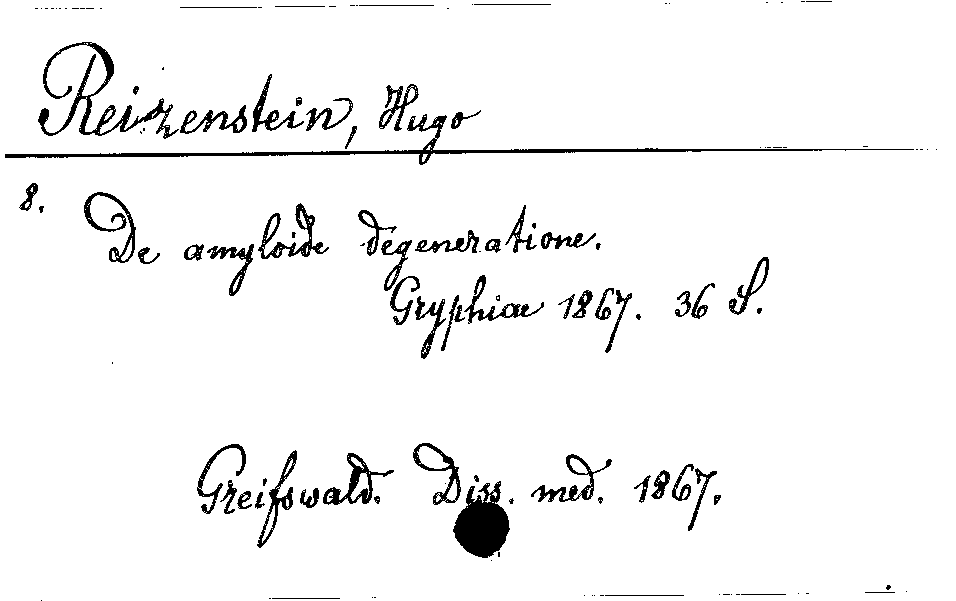 Reizenstein, Hugo
8.
De amyloide degeneratione.
Gryphiae 1867. 36 S.
Greifswald. Diss. med. 1867.